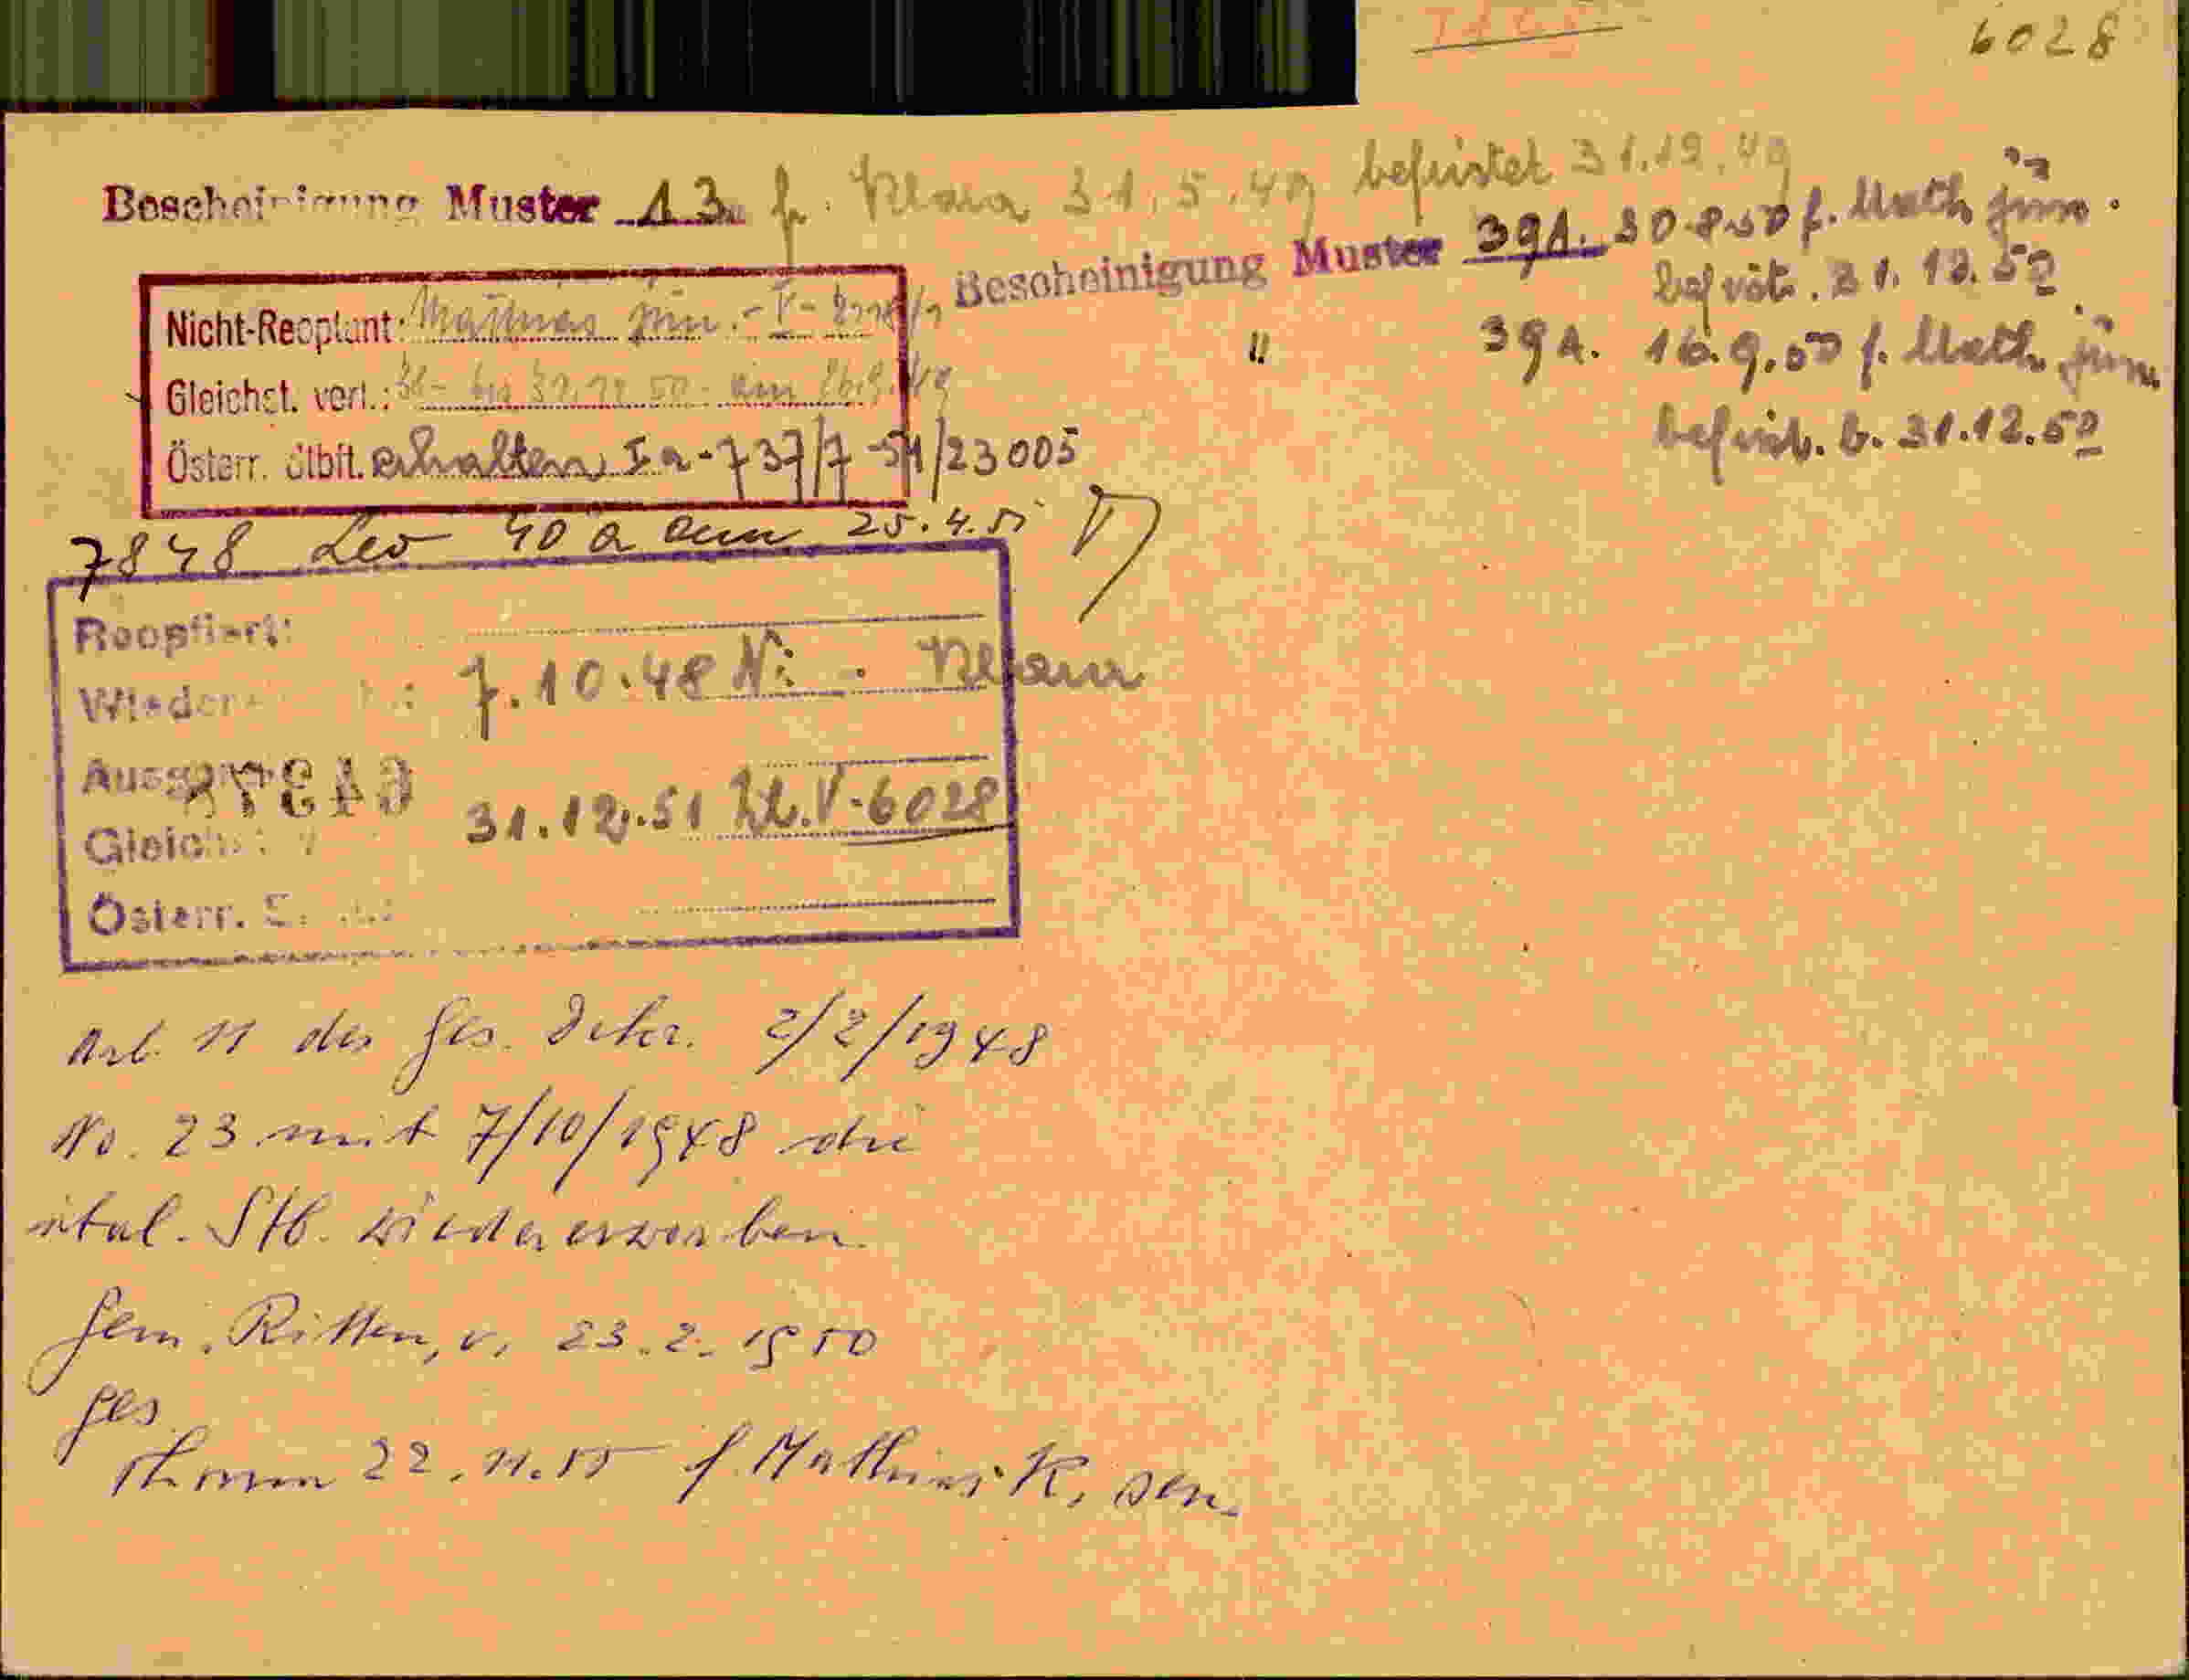 6028
Bescheinigung Muster 13 f. Klara 31.5.49 befristet 31.12.49
Bescheinigung Muster 39A. 30.8.50 f. Math jün.
befrist. 31.12.50
" 39A. 16.9.50 f. Math. jün.
befrist. b. 31.12.50
Nicht-Reoptant: Mathias jün. - V -
Gleichst. verl.: bis 31.12.50 am 26.9.49
Österr. Stbft. erhalten Ia-737/7-51/23005
7848 Leo 40a am 25.4.51
Reoptiert:
7.10.48 Ni. Klara
31.12.51 Zl. V-6028
Gleichst.
Österr.
Art. 11 des Ges. Dekr. 2/2/1948
No. 23 mit 7/10/1948 die
ital. Stb. wiedererworben
Gem. Ritten, v. 23.2.1950
ges.
22.11.50 f. Mathias K. sen.